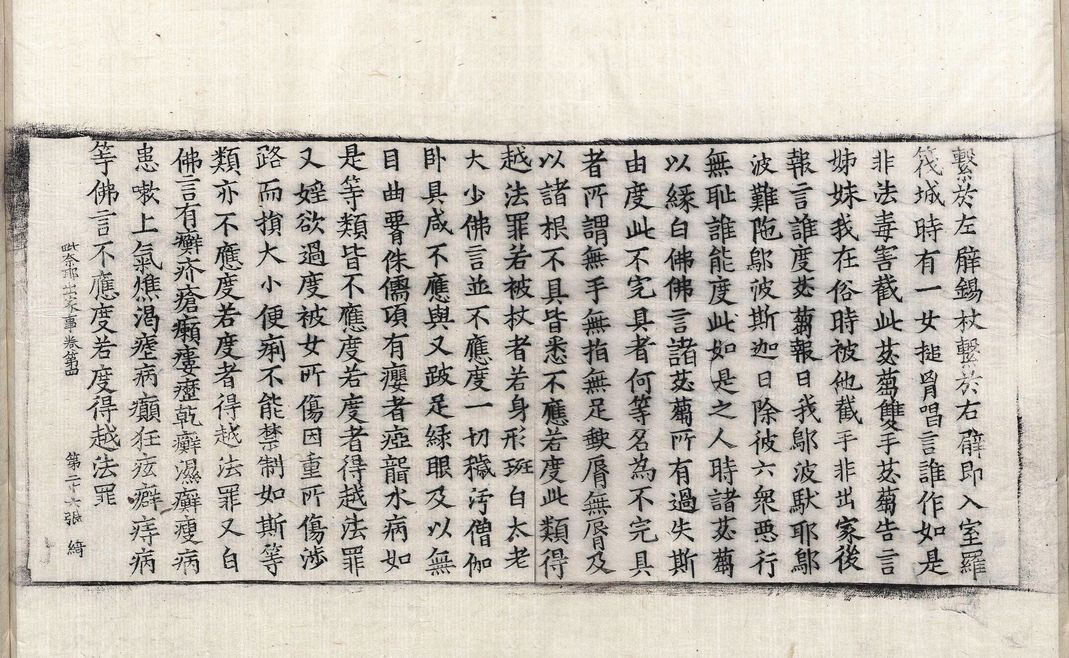 繫於左臂錫杖繫於右臂即入室羅
筏城時有一女搥胷唱言誰作如是
非法毒害截此苾蒭雙手苾蒭告言
姊妹我在俗時被他截手非出家後
報言誰度苾蒭報曰我鄔波馱耶鄔
波難陁鄔波斯迦曰除彼六衆惡行
無耻誰能度此如是之人時諸苾蒭
以縁白佛佛言諸苾蒭所有過失斯
由度此不完具者何等名為不完具
者所謂無手無指無足缺脣無脣及
以諸根不具皆悉不應若度此類得
越法罪若被杖者若身形斑白太老
大少佛言並不應度一切穢汙僧伽
卧具咸不應與又跛足緑眼及以無
目曲侏儒項有癭者瘂聾水病如
是等類皆不應度若度者得越法罪
又婬欲過度被女所傷因重所傷涉
路而損大小便痢不能禁制如斯等
類亦不應度若度者得越法罪又白
佛言有癬疥瘡癩瘻乾癬濕癬瘦病
患嗽上氣憔渴病癲狂痃癖痔病
等佛言不應度若度得越法罪
毗奈耶出家事卷第四 第二十六張 綺